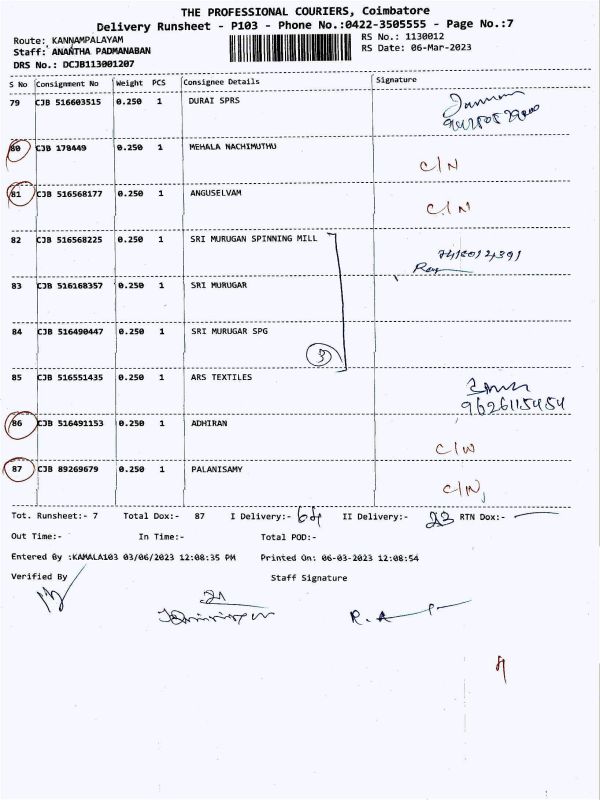 THE PROFESSIONAL COURIERS, Coimbatore
Delivery Runsheet - P103 - Phone No.:0422-3505555 - Page No.:7
Route: KANNAMPALAYAM RS No.: 1130012
Staff: ANANTHA PADMANABAN RS Date: 06-Mar-2023
DRS No.: DCJB113001207
S No Consignment No Weight PCS Consignee Details Signature
79 CJB 516603515 0.250 1 DURAI SPRS
80 CJB 178449 0.250 1 MEHALA NACHIMUTHU
C/N
81 CJB 516568177 0.250 1 ANGUSELVAM
C/N
82 CJB 516568225 0.250 1 SRI MURUGAN SPINNING MILL
83 CJB 516168357 0.250 1 SRI MURUGAR
84 CJB 516490447 0.250 1 SRI MURUGAR SPG
3
85 CJB 516551435 0.250 1 ARS TEXTILES
9626115454
86 CJB 516491153 0.250 1 ADHIRAN
C/N
87 CJB 89269679 0.250 1 PALANISAMY
C/N
Tot. Runsheet:- 7 Total Dox:- 87 I Delivery:- 64 II Delivery:- 23 RTN Dox:-
Out Time:- In Time:- Total POD:-
Entered By :KAMALA103 03/06/2023 12:08:35 PM Printed On: 06-03-2023 12:08:54
Verified By Staff Signature